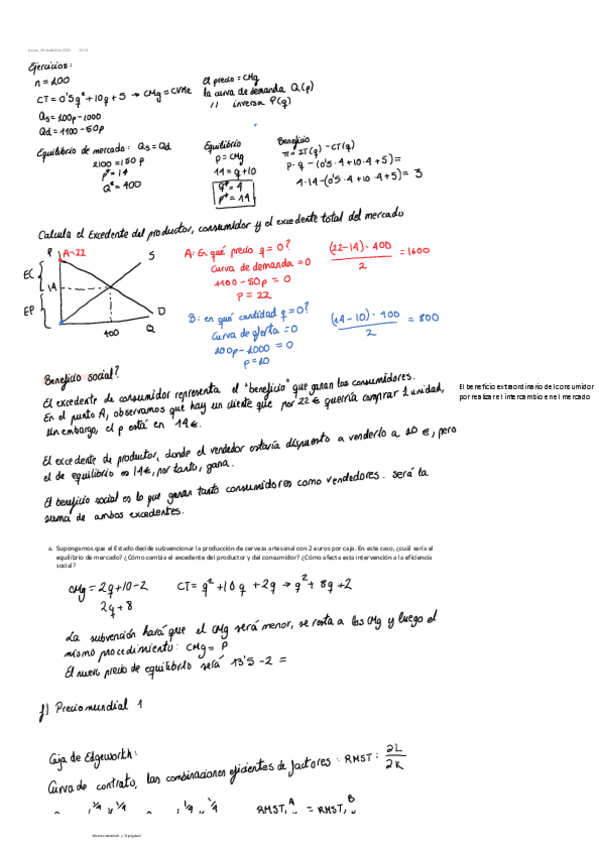 Ejercicios:
n = 100
CT = 0'5q² + 10q + 5 → CMg = CVMe
Qs = 100p - 1000
Qd = 1100 - 50p
El precio = CMg
la curva de demanda Q(p)
// inversa P(q)
Equilibrio de mercado: Qs = Qd
2100 = 150p
p* = 14
Q* = 400
Equilibrio
p = CMg
14 = q + 10
q* = 4
p* = 14
Beneficio
π = IT(q) - CT(q)
P · q - (0'5 · 4 + 10 · 4 + 5) =
4 · 14 - (0'5 · 4 + 10 · 4 + 5) = 3
Calcula el Excedente del productor, consumidor y el excedente total del mercado
P A=22 S
EC
14
EP
D
400 Q
A: En qué precio q = 0?
Curva de demanda = 0
1100 - 50p = 0
P = 22
(22-14) · 400 / 2 = 1600
B: en qué cantidad q = 0?
Curva de oferta = 0
100p - 1000 = 0
p = 10
(14 - 10) · 400 / 2 = 800
Beneficio social?
El excedente de consumidor representa el "beneficio" que ganan los consumidores.
En el punto A, observamos que hay un cliente que por 22 € querría comprar 1 unidad,
sin embargo, el p está en 14 €.
El beneficio extraordinario del consumidor
por realizar el intercambio en el mercado
El excedente de productor, donde el vendedor estaría dispuesto a venderlo a 10 €, pero
el de equilibrio es 14€, por tanto, gana.
El beneficio social es lo que ganan tanto consumidores como vendedores. será la
suma de ambos excedentes.
e. Supongamos que el Estado decide subvencionar la producción de cerveza artesanal con 2 euros por caja. En este caso, ¿cuál sería el
equilibrio de mercado? ¿Cómo cambia el excedente del productor y del consumidor? ¿Cómo afecta esta intervención a la eficiencia
social?
CMg = 2q + 10 - 2 CT = q² + 10q + 2q → q² + 8q + 2
2q + 8
La subvención hará que el CMg será menor, se resta a los CMg y luego el
mismo procedimiento: CMg = P
El nuevo precio de equilibrio será 13'5 - 2 =
f) Precio mundial 1
Caja de Edgeworth:
Curva de contrato, las combinaciones eficientes de factores: RMST: ∂L / ∂K
RMST, A = RMST, B